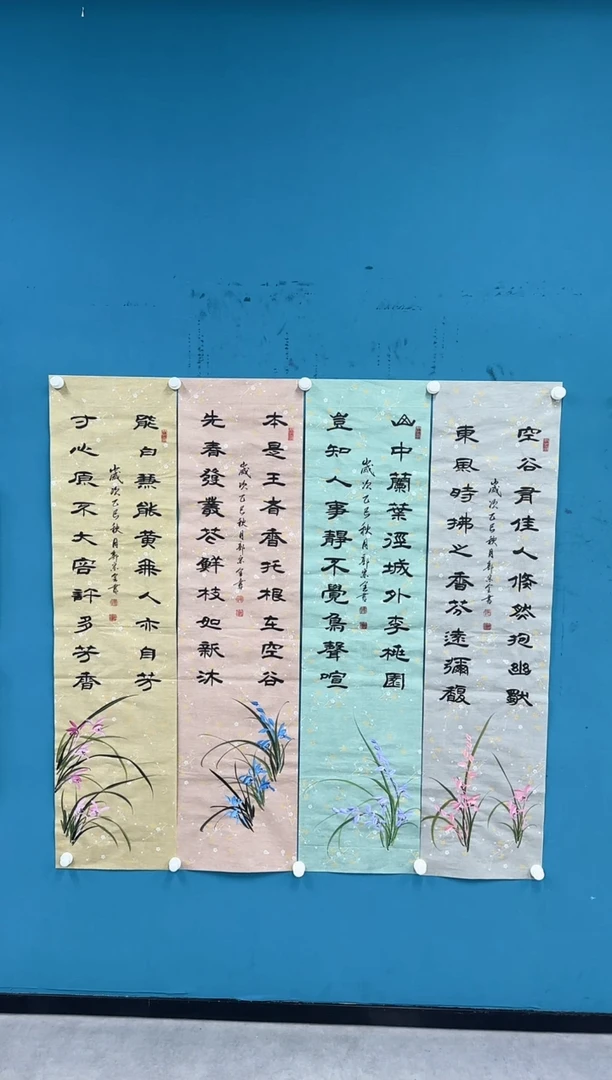 空谷有佳人倏然抱幽獨
東風時拂之香芬遠彌馥
歲次乙巳秋月郭 書
山中蘭葉徑城外李桃園
豈知人事靜不覺鳥聲喧
歲次乙巳秋月郭 書
本是王者香托根在空谷
先春發叢花鮮枝如新沐
歲次乙巳秋月郭 書
能白兼能黃無人亦自芳
寸心原不大容許多芳香
歲次乙巳秋月郭 書